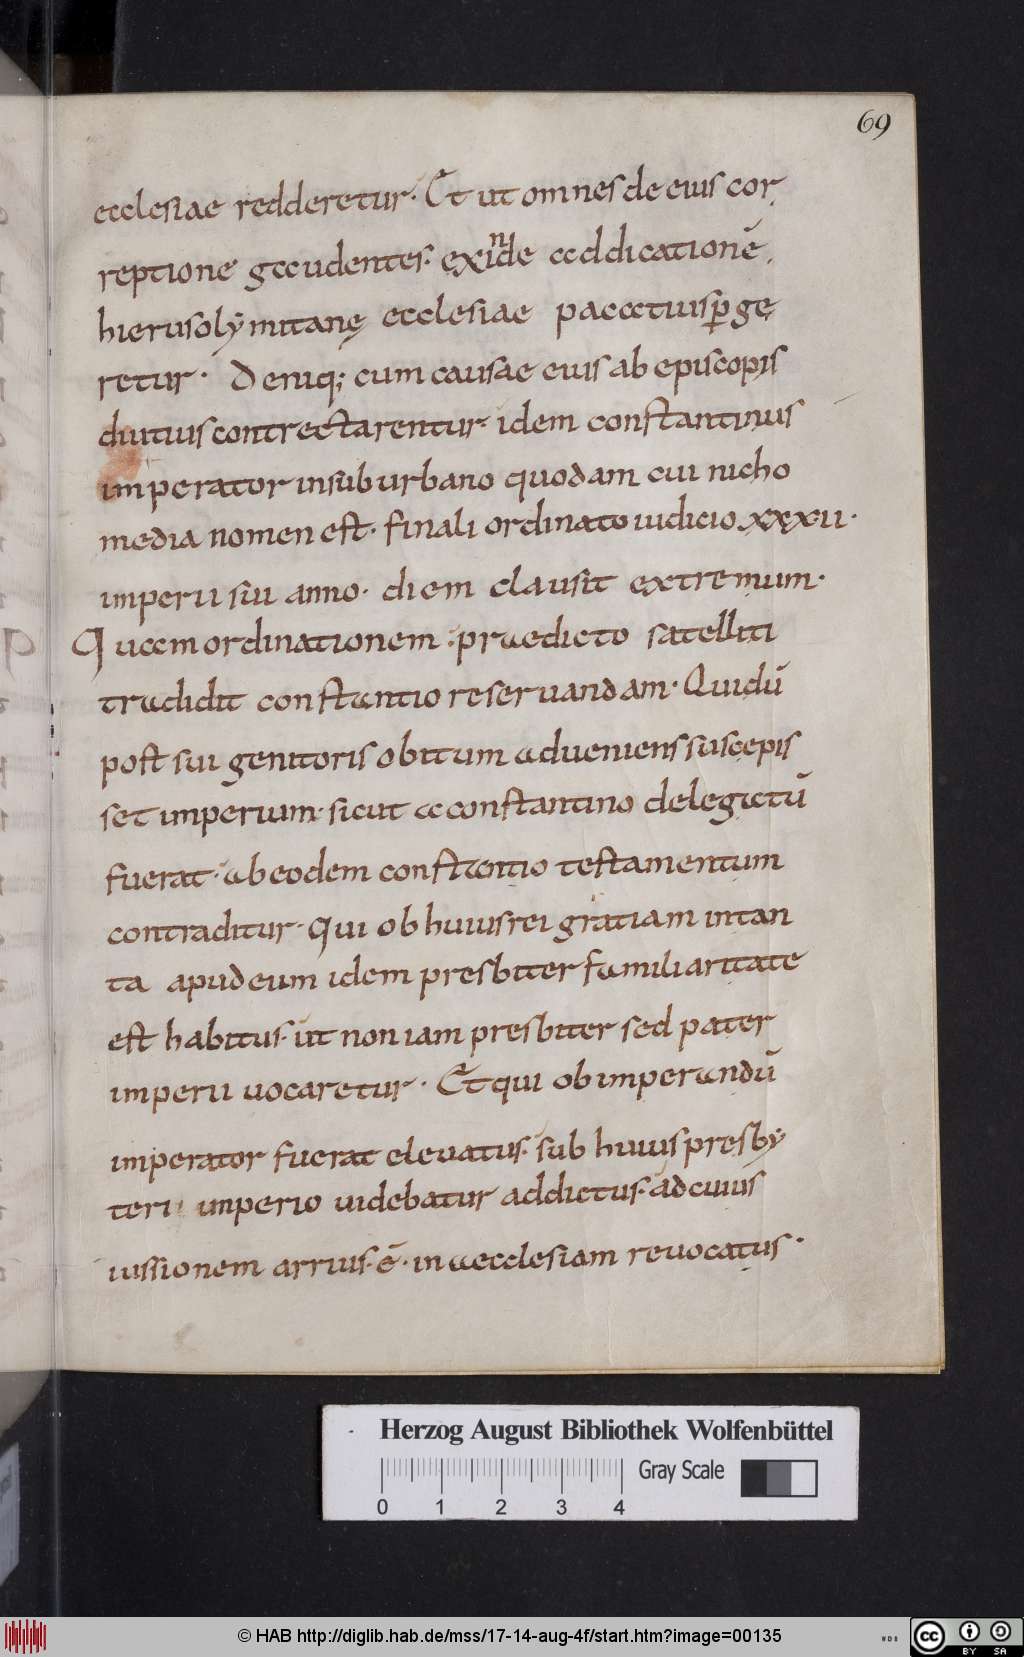 69
ecclesiae redderetur· Et ut omnes de eius cor
reptione gaudentes· exinde addicationē
hierusolymitanę ecclesiae pacatuis ꝑge
retur· Deniq; cum causae eius ab episcopis
diutius contrectarentur· idem constantinus
imperator in suburbano quodam cui nicho
media nomen est· finali ordinato iudicio xxxii·
imperii sui anno· diem clausit extremum·
Quam ordinationem praedicto satelliti
tradidit constantio reseruandam· Qui dū
post sui genitoris obitum adueniens suscepis
set imperium· sicut a constantino delegatū
fuerat· ab eodem constantio testamentum
contraditur· Qui ob huius rei gratiam in tan
ta apud eum idem presbiter familiaritate
est habitus· ut non iam presbiter sed pater
imperii uocaretur· Et qui ob imperandū
imperator fuerat eleuatus· sub huius presby
teri imperio uidebatur addictus· ad cuius
iussionem arrius· ē· in aecclesiam reuocatus·
Herzog August Bibliothek Wolfenbüttel
0 1 2 3 4
Gray Scale
© HAB http://diglib.hab.de/mss/17-14-aug-4f/start.htm?image=00135
WDB
cc BY SA